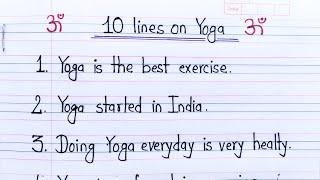 ॐ 10 lines on Yoga ॐ
1. Yoga is the best exercise.
2. Yoga started in India.
3. Doing Yoga everyday is very healty.